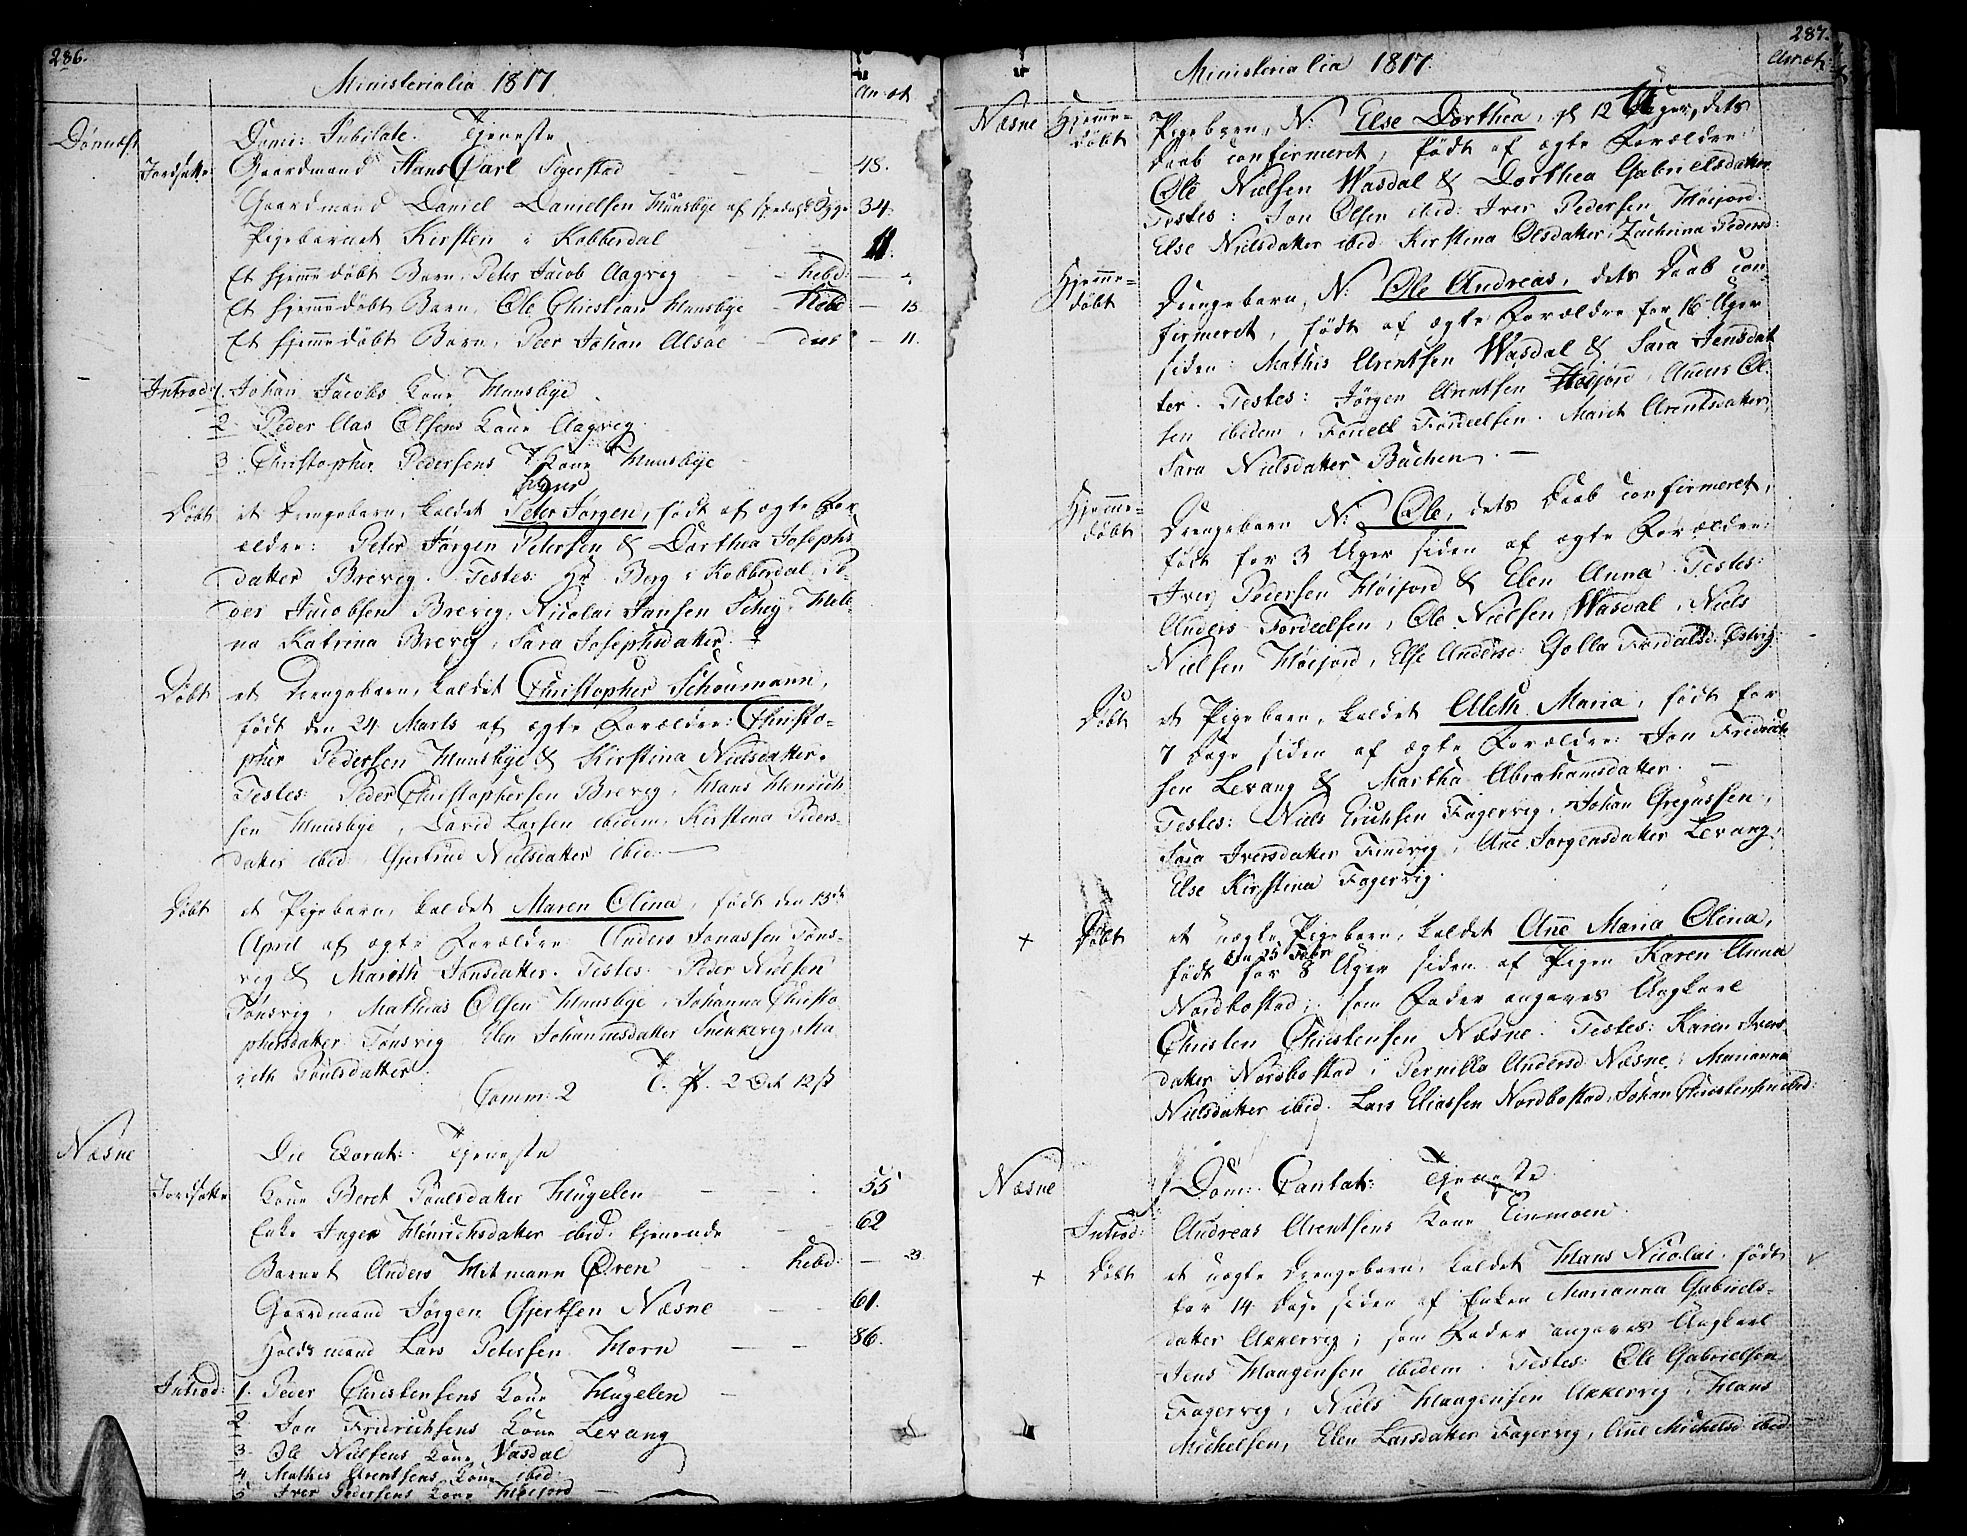 286.
Ministerialia 1817.
An: æt.
Dønnæs
Domi: Jubilate. Tjeneste
Jordsatte Gaardmand Hans Carl Sigerstad 48.
Gaardmand Daniel Danielsen Hunsbye af 34.
Pigebarnet Kirsten i Kobberdal 11.
Et hjemmedøbt Barn, Peter Jacob Aagvig hebd: —
Et hjemmedøbt Barn, Ole Christian Hunsbye hebd — 15
Et hjemmedøbt Barn, Peer Johan Alsøe — 11.
Introd: 1. Johan Jacobs Kone Hunsbye
2 Peder Aas Olsens Kone Aagvig.
3 Christopher Pedersens Kone Hunsbye
Døbt et Drengebarn, kaldet Peter Jørgen, født af ægte For-
ældre: Peter Jørgen Petersen & Dorthea Josephs
datter Brevig. Testes: Hr Berg i Kobberdal, Pe-
der Jacobsen Brevig, Nicolai Jansen Schey, Hele-
na Katrina Brevig, Sara Josephsdatter
Døbt et Drengebarn, kaldet Christopher Schoumann,
født den 24 Marts af ægte Forældre: Christo-
pher Pedersen Hunsbye & Kirstina Nielsdatter.
Testes: Peder Christophersen Brevig, Hans Henrich
sen Hunsbye, David Larsen ibidem, Kirstina Peders-
datter ibid, Gjertrud Nielsdatter ibid. —
Døbt et Pigebarn, kaldet Maren Olina, født den 13de
April af ægte Forældre Anders Jonassen Tøns-
vig & Mareth Jonsdatter. Testes: Peder Nielsen
Tønsvig, Mathias Olsen Hunsbye, Johanna Christo
phersdatter Tønsvig Elen Johannesdatter Snekkevig, Ma-
reth Poulsdatter.
Comm: 2
Næsne
Die Exorat: Tjeneste
Jordsatte Kone Beret Poulsdatter Hugelen 55
Enke Inger Henrichsdatter ibid. tjenende 62
Barnet Anders Hitmann Øren hebd: — 23.
Gaardmand Jørgen Gjertsen Næsne 61.
Huusmand Lars Petersen Horn 86.
Introd: 1. Peder Christensens Kone Hugelen
2 Jon Fridrichsens Kone Levang
3. Ole Nielsens Kone Vasdal
4. Mathis Arentsens Kone ibid:
5 Iver Pedersens Kone Høifjord
287.
Ministerialia 1817.
An: æt:
Næsne Hjemme- Pigebarn, N: Else Dorthea, 12 Uger, dets
døbt Daab confirmeret, født af ægte Forældre:
Ole Nielsen Wasdal & Dorthea Gabrielsdatter
Testes: Jon Olsen ibid: Iver Pedersen Høifjord.
Else Nielsdatter ibid. Kirstina Olsdatter, Zachrina Pedersd:
Hjemme- Drengebarn, N: Ole Andreas, dets Daab con-
døbt firmeret, født af ægte Forældre for 16 Uger
siden: Mathis Arentsen Wasdal & Sara Jensdat
ter. Testes: Jørgen Arentsen Høifjord, Anders Ol-
sen ibidem, Mareth Arentsdatter,
Sara Nielsdatter Bachen. —
Hjemme- Drengebarn N: Ole, dets Daab confirmeret,
døbt født for 3 Uger siden af ægte Forældre:
Iver Pedersen Høifjord & Elen Anna Testes:
Anders Fordelsen, Ole Nielsen Wasdal, Niels
Nielsen Høifjord, Else Andersd: Golla Østvig:
Døbt et Pigebarn, kaldet Aleth Maria, født for
7 Dage siden af ægte Forældre: Jon Fredrich
sen Levang & Martha Abrahamsdatter. —
Testes: Niels Erichsen Fagervig, Johan Gregussen,
Sara Iversdatter Findvig, Ane Jørgensdatter Levang,
Else Kirstina Fagervig.
+ Døbt et uægte Pigebarn, kaldet Ane Maria Olina,
den 25 Febr
født for 8 Uger siden af Pigen Karen Anna
Nordbostad; som Fader angaves Ungkarl
Christen Christensen Næsne. Testes: Karen Ivers-
datter Nordbostad, Pernilla Andersd: Næsne, Marianna
Nielsdatter ibid. Lars Eliassen Nordbostad, Johan Christensen ibid:
Næsne Dom: Cantat: Tjeneste
Introd: Andreas Arentsens Kone Einmoen
+ Døbt et uægte Drengebarn, kaldet Hans Nicolai, født
for 14 Dage siden af Enken Marianna Gabriels-
datter Akkervig; som Fader angaves Ungkarl
Jens Haagensen ibidem. Testes: Ole Gabrielsen
Fagervig, Niels Haagensen Akkervig, Hans
Michelsen, Elen Larsdatter Fagervig, Ane Michelsd ibid